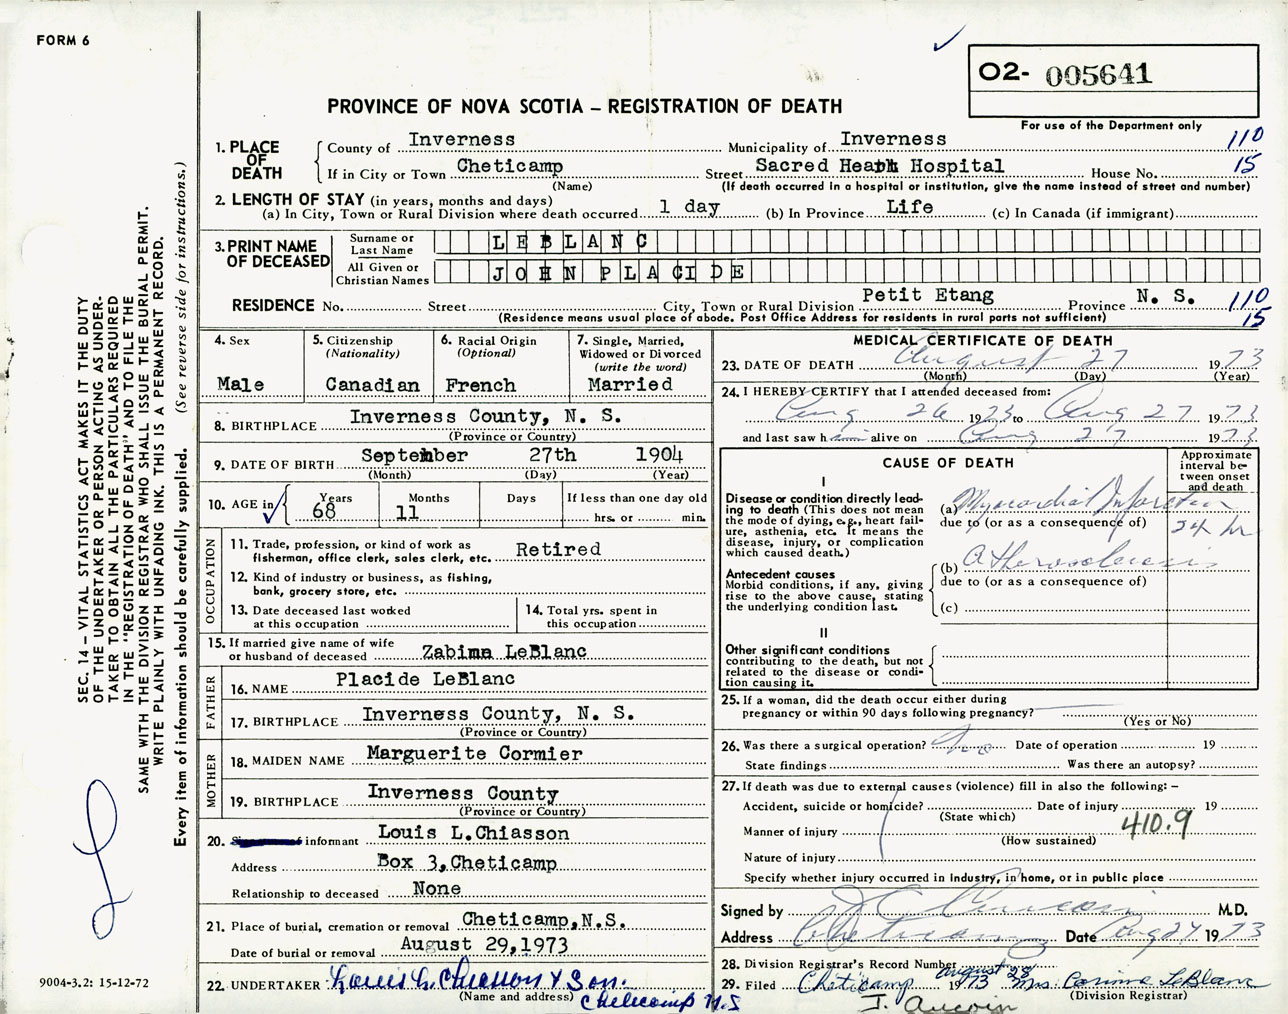 FORM 6
O2- 005641
For use of the Department only
PROVINCE OF NOVA SCOTIA – REGISTRATION OF DEATH
1. PLACE OF DEATH
County of Inverness Municipality of Inverness 110
If in City or Town Cheticamp Street Sacred Heart Hospital House No. 15
(Name) (If death occurred in a hospital or institution, give the name instead of street and number)
2. LENGTH OF STAY (in years, months and days)
(a) In City, Town or Rural Division where death occurred 1 day (b) In Province Life (c) In Canada (if immigrant)
3. PRINT NAME OF DECEASED
Surname or Last Name LEBLANC
All Given or Christian Names JOHN PLACIDE
RESIDENCE No. Street City, Town or Rural Division Petit Etang Province N. S. 110
(Residence means usual place of abode. Post Office Address for residents in rural parts not sufficient) 15
4. Sex
Male
5. Citizenship
(Nationality)
Canadian
6. Racial Origin
(Optional)
French
7. Single, Married,
Widowed or Divorced
(write the word)
Married
8. BIRTHPLACE Inverness County, N. S.
(Province or Country)
9. DATE OF BIRTH September 27th 1904
(Month) (Day) (Year)
10. AGE in
Years Months Days If less than one day old
68 11 hrs. or min.
OCCUPATION
11. Trade, profession, or kind of work as
fisherman, office clerk, sales clerk, etc. Retired
12. Kind of industry or business, as fishing,
bank, grocery store, etc.
13. Date deceased last worked
at this occupation
14. Total yrs. spent in
this occupation
15. If married give name of wife
or husband of deceased Zabinn LeBlanc
FATHER
16. NAME Placide LeBlanc
17. BIRTHPLACE Inverness County, N. S.
(Province or Country)
MOTHER
18. MAIDEN NAME Marguerite Cormier
19. BIRTHPLACE Inverness County
(Province or Country)
20. informant Louis L.Chiasson
Address Box 3,Cheticamp
Relationship to deceased None
21. Place of burial, cremation or removal Cheticamp,N.S.
Date of burial or removal August 29,1973
22. UNDERTAKER Louis L. Chiasson & Son.
(Name and address) Cheticamp N.S
MEDICAL CERTIFICATE OF DEATH
23. DATE OF DEATH August 27 1973
(Month) (Day) (Year)
24. I HEREBY CERTIFY that I attended deceased from:
Aug 26 1973 to Aug 27 1973
and last saw him alive on Aug 27 1973
CAUSE OF DEATH
Approximate
interval be-
tween onset
and death
I
Disease or condition directly lead-
ing to death (This does not mean
the mode of dying, e.g., heart fail-
ure, asthenia, etc. It means the
disease, injury, or complication
which caused death.)
(a) Myocardial Infarction
due to (or as a consequence of) 24 hr
Antecedent causes
Morbid conditions, if any, giving
rise to the above cause, stating
the underlying condition last.
(b) Atherosclerosis
due to (or as a consequence of)
(c)
II
Other significant conditions
contributing to the death, but not
related to the disease or condi-
tion causing it.
25. If a woman, did the death occur either during
pregnancy or within 90 days following pregnancy?
(Yes or No)
26. Was there a surgical operation? no Date of operation 19
State findings Was there an autopsy?
27. If death was due to external causes (violence) fill in also the following: –
Accident, suicide or homicide? Date of injury 19
(State which) 410.9
Manner of injury
(How sustained)
Nature of injury
Specify whether injury occurred in industry, in home, or in public place
Signed by M.D.
Address Cheticamp Date Aug 27 1973
28. Division Registrar's Record Number
29. Filed Cheticamp August 28 1973 Mrs. Corinne LeBlanc
(Division Registrar)
J. Aucoin
SEC. 14 – VITAL STATISTICS ACT MAKES IT THE DUTY
OF THE UNDERTAKER OR PERSON ACTING AS UNDER-
TAKER TO OBTAIN ALL THE PARTICULARS REQUIRED
IN THE "REGISTRATION OF DEATH" AND TO FILE THE
SAME WITH THE DIVISION REGISTRAR WHO SHALL ISSUE THE BURIAL PERMIT.
WRITE PLAINLY WITH UNFADING INK. THIS IS A PERMANENT RECORD.
Every item of information should be carefully supplied. (See reverse side for instructions.)
9004-3.2: 15-12-72